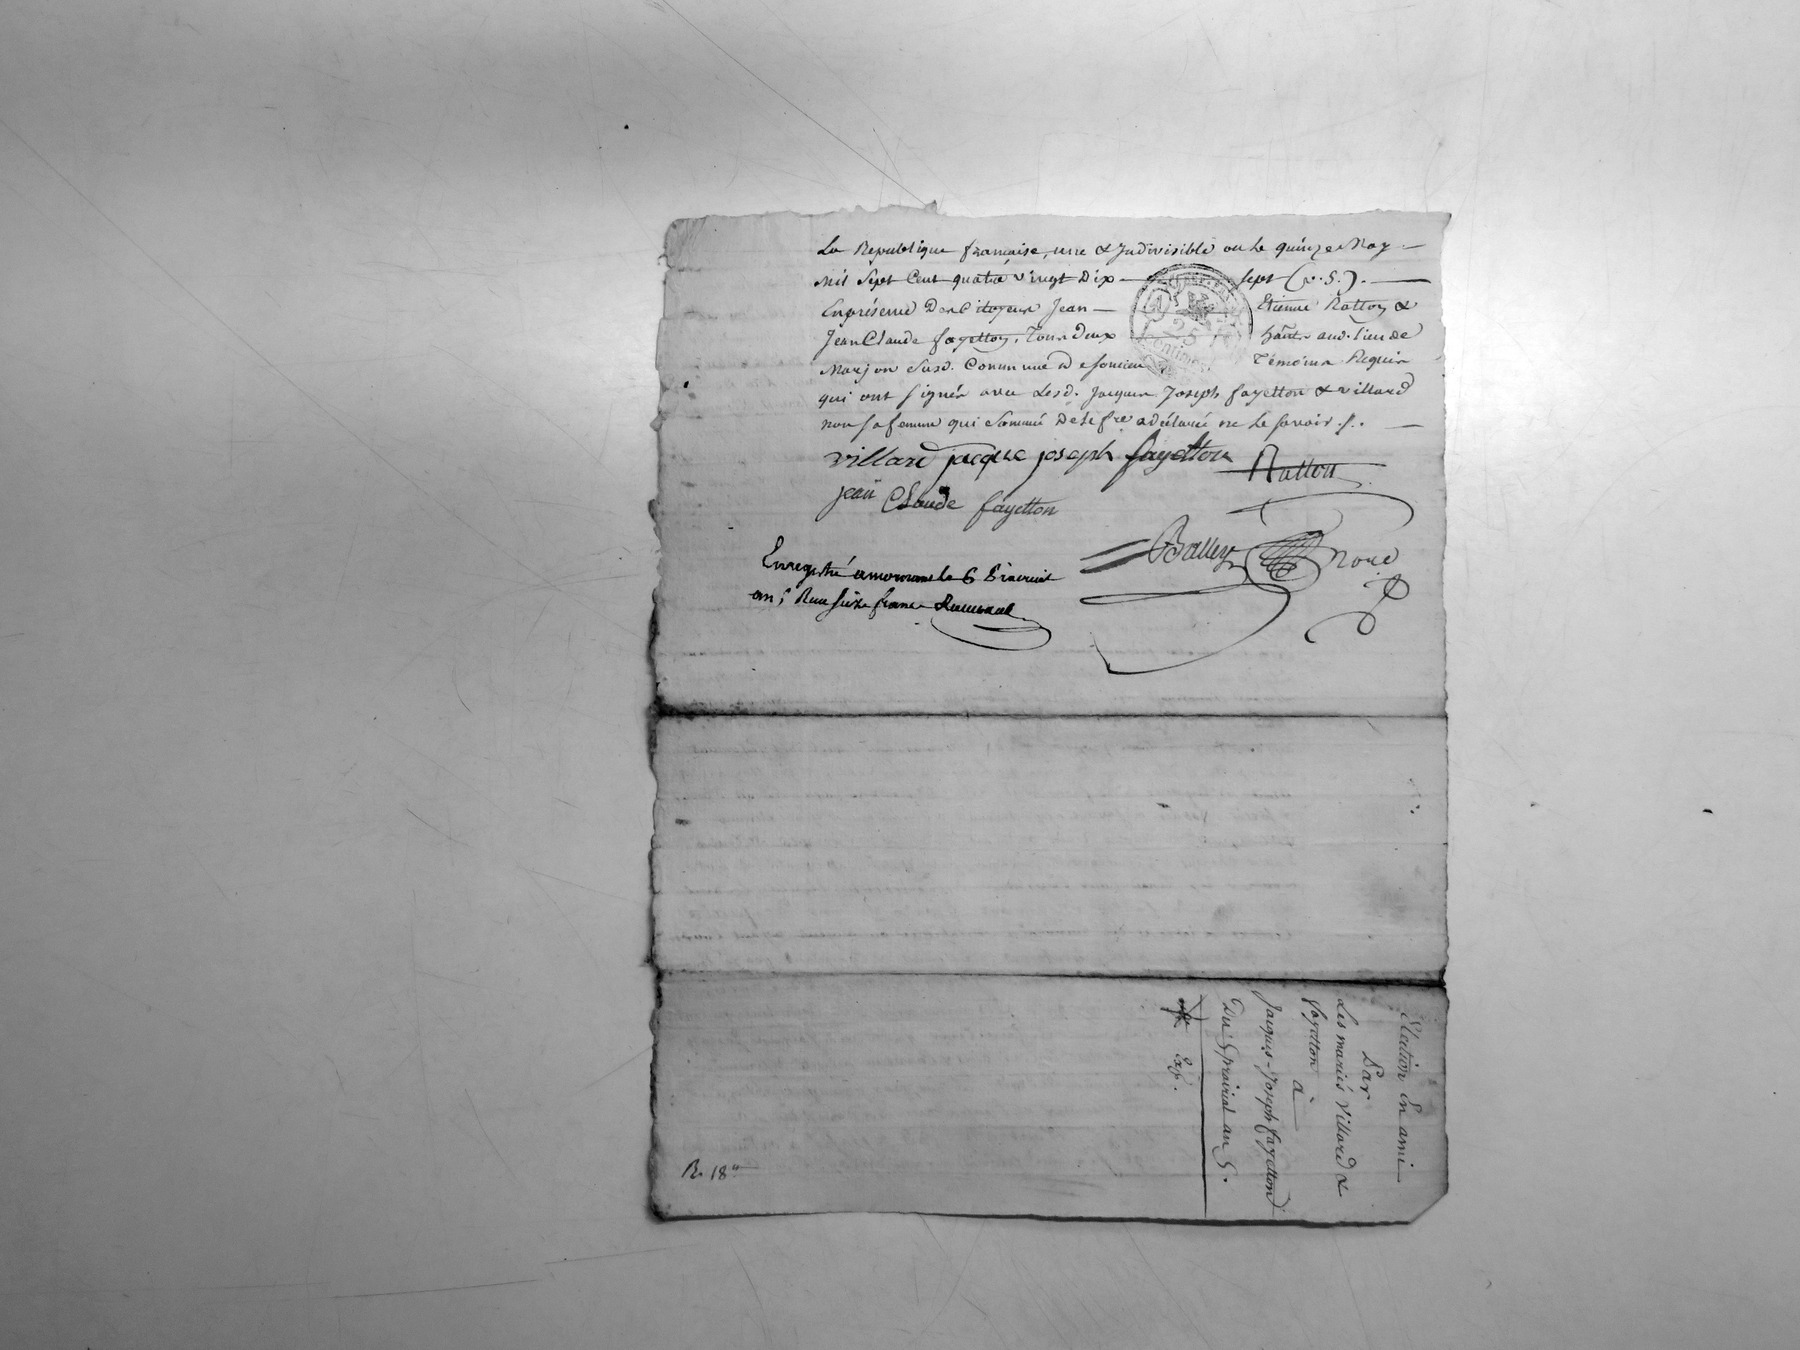 La Republique francaise, une & Indivisible ou le quinze May
mil sept Cent quatre vingt Dix sept (v. S.).
En présence Des Citoyens Jean Etienne Ratton &
Jean Claude fayetton, Tous Deux habts aud. lieu de
Marjon susd. Commune de Témoins Requis
qui ont signés avec Lesd. Jacques Joseph fayetton & villard
non sa femme qui sommé De le fre a déclaré ne le savoir ./.
villard jacque joseph fayetton Ratton
jean Claude fayetton
Balley
Enregistré a le 6
an 5 Reçu six francs
25
Centimes
Election En ami
Par
Les mariés Villard &
fayetton
à
Jacques-Joseph fayetton
Du prairial an 5.
Exp.
R. 18